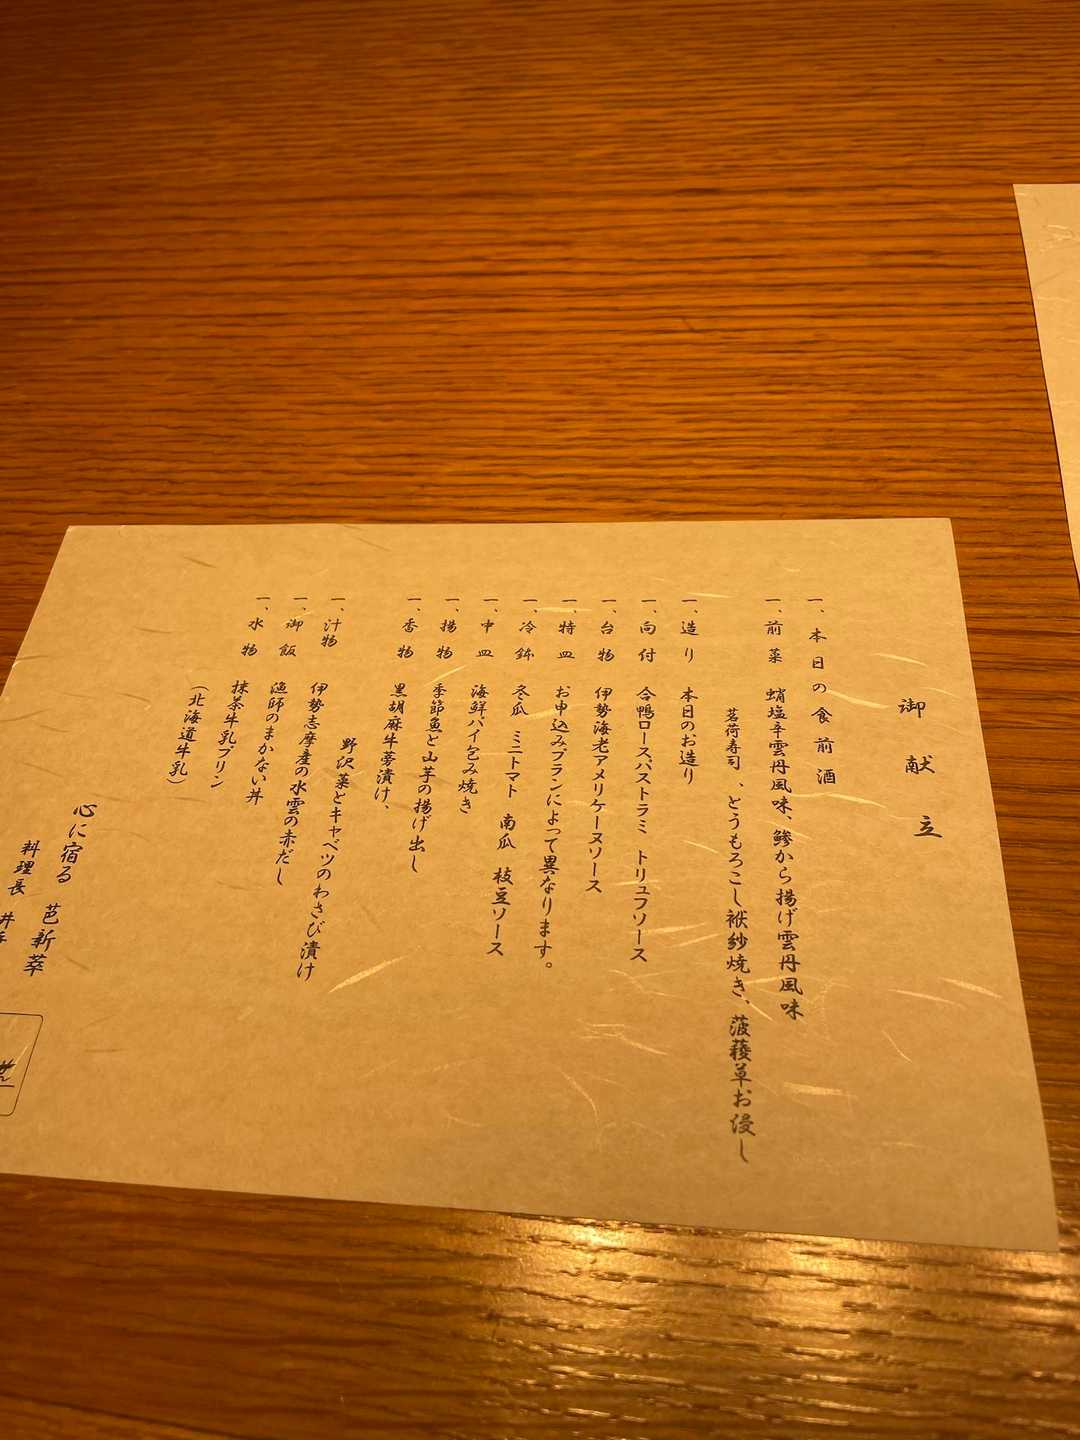 御献立
一、本日の食前酒
一、前菜　蛸塩辛雲丹風味、鯵から揚げ雲丹風味
茗荷寿司、とうもろこし袱紗焼き、菠薐草お浸し
一、造り　本日のお造り
一、向付　合鴨ロースパストラミ　トリュフソース
一、台物　伊勢海老アメリケーヌソース
一、特皿　お申込みプランによって異なります。
一、冷鉢　冬瓜　ミニトマト　南瓜　枝豆ソース
一、中皿　海鮮パイ包み焼き
一、揚物　季節魚と山芋の揚げ出し
一、香物　黒胡麻牛蒡漬け、
野沢菜とキャベツのわさび漬け
一、汁物　伊勢志摩産の水雲の赤だし
一、御飯　漁師のまかない丼
一、水物　抹茶牛乳プリン
（北海道牛乳）
心に宿る　芭新萃
料理長　井